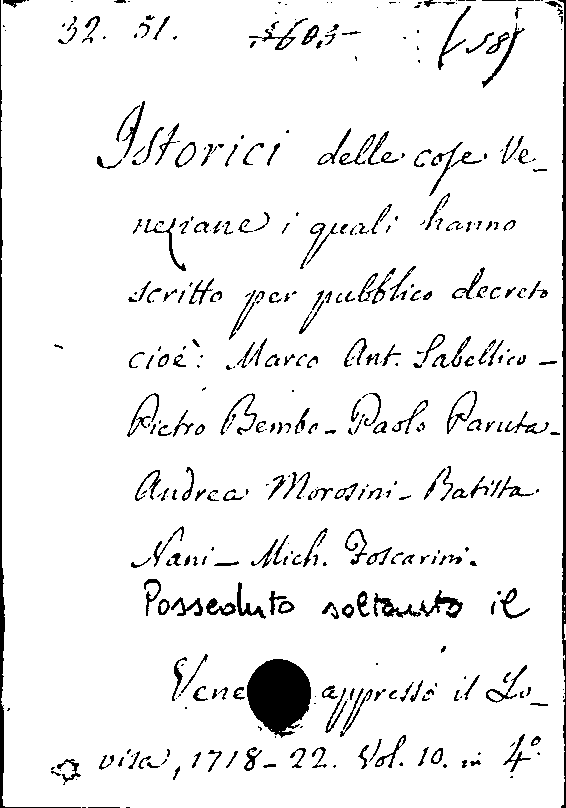 32. 51. 5603 (58)
Istorici delle cose Ve-
neziane i quali hanno
scritto per pubblico decreto
cioè: Marco Ant. Sabellico -
Pietro Bembo - Paolo Paruta -
Andrea Morosini - Batista
Nani - Mich. Foscarini.
Posseduto soltanto il
Vene appresso il Lo-
visa, 1718-22. Vol. 10. in 4º.